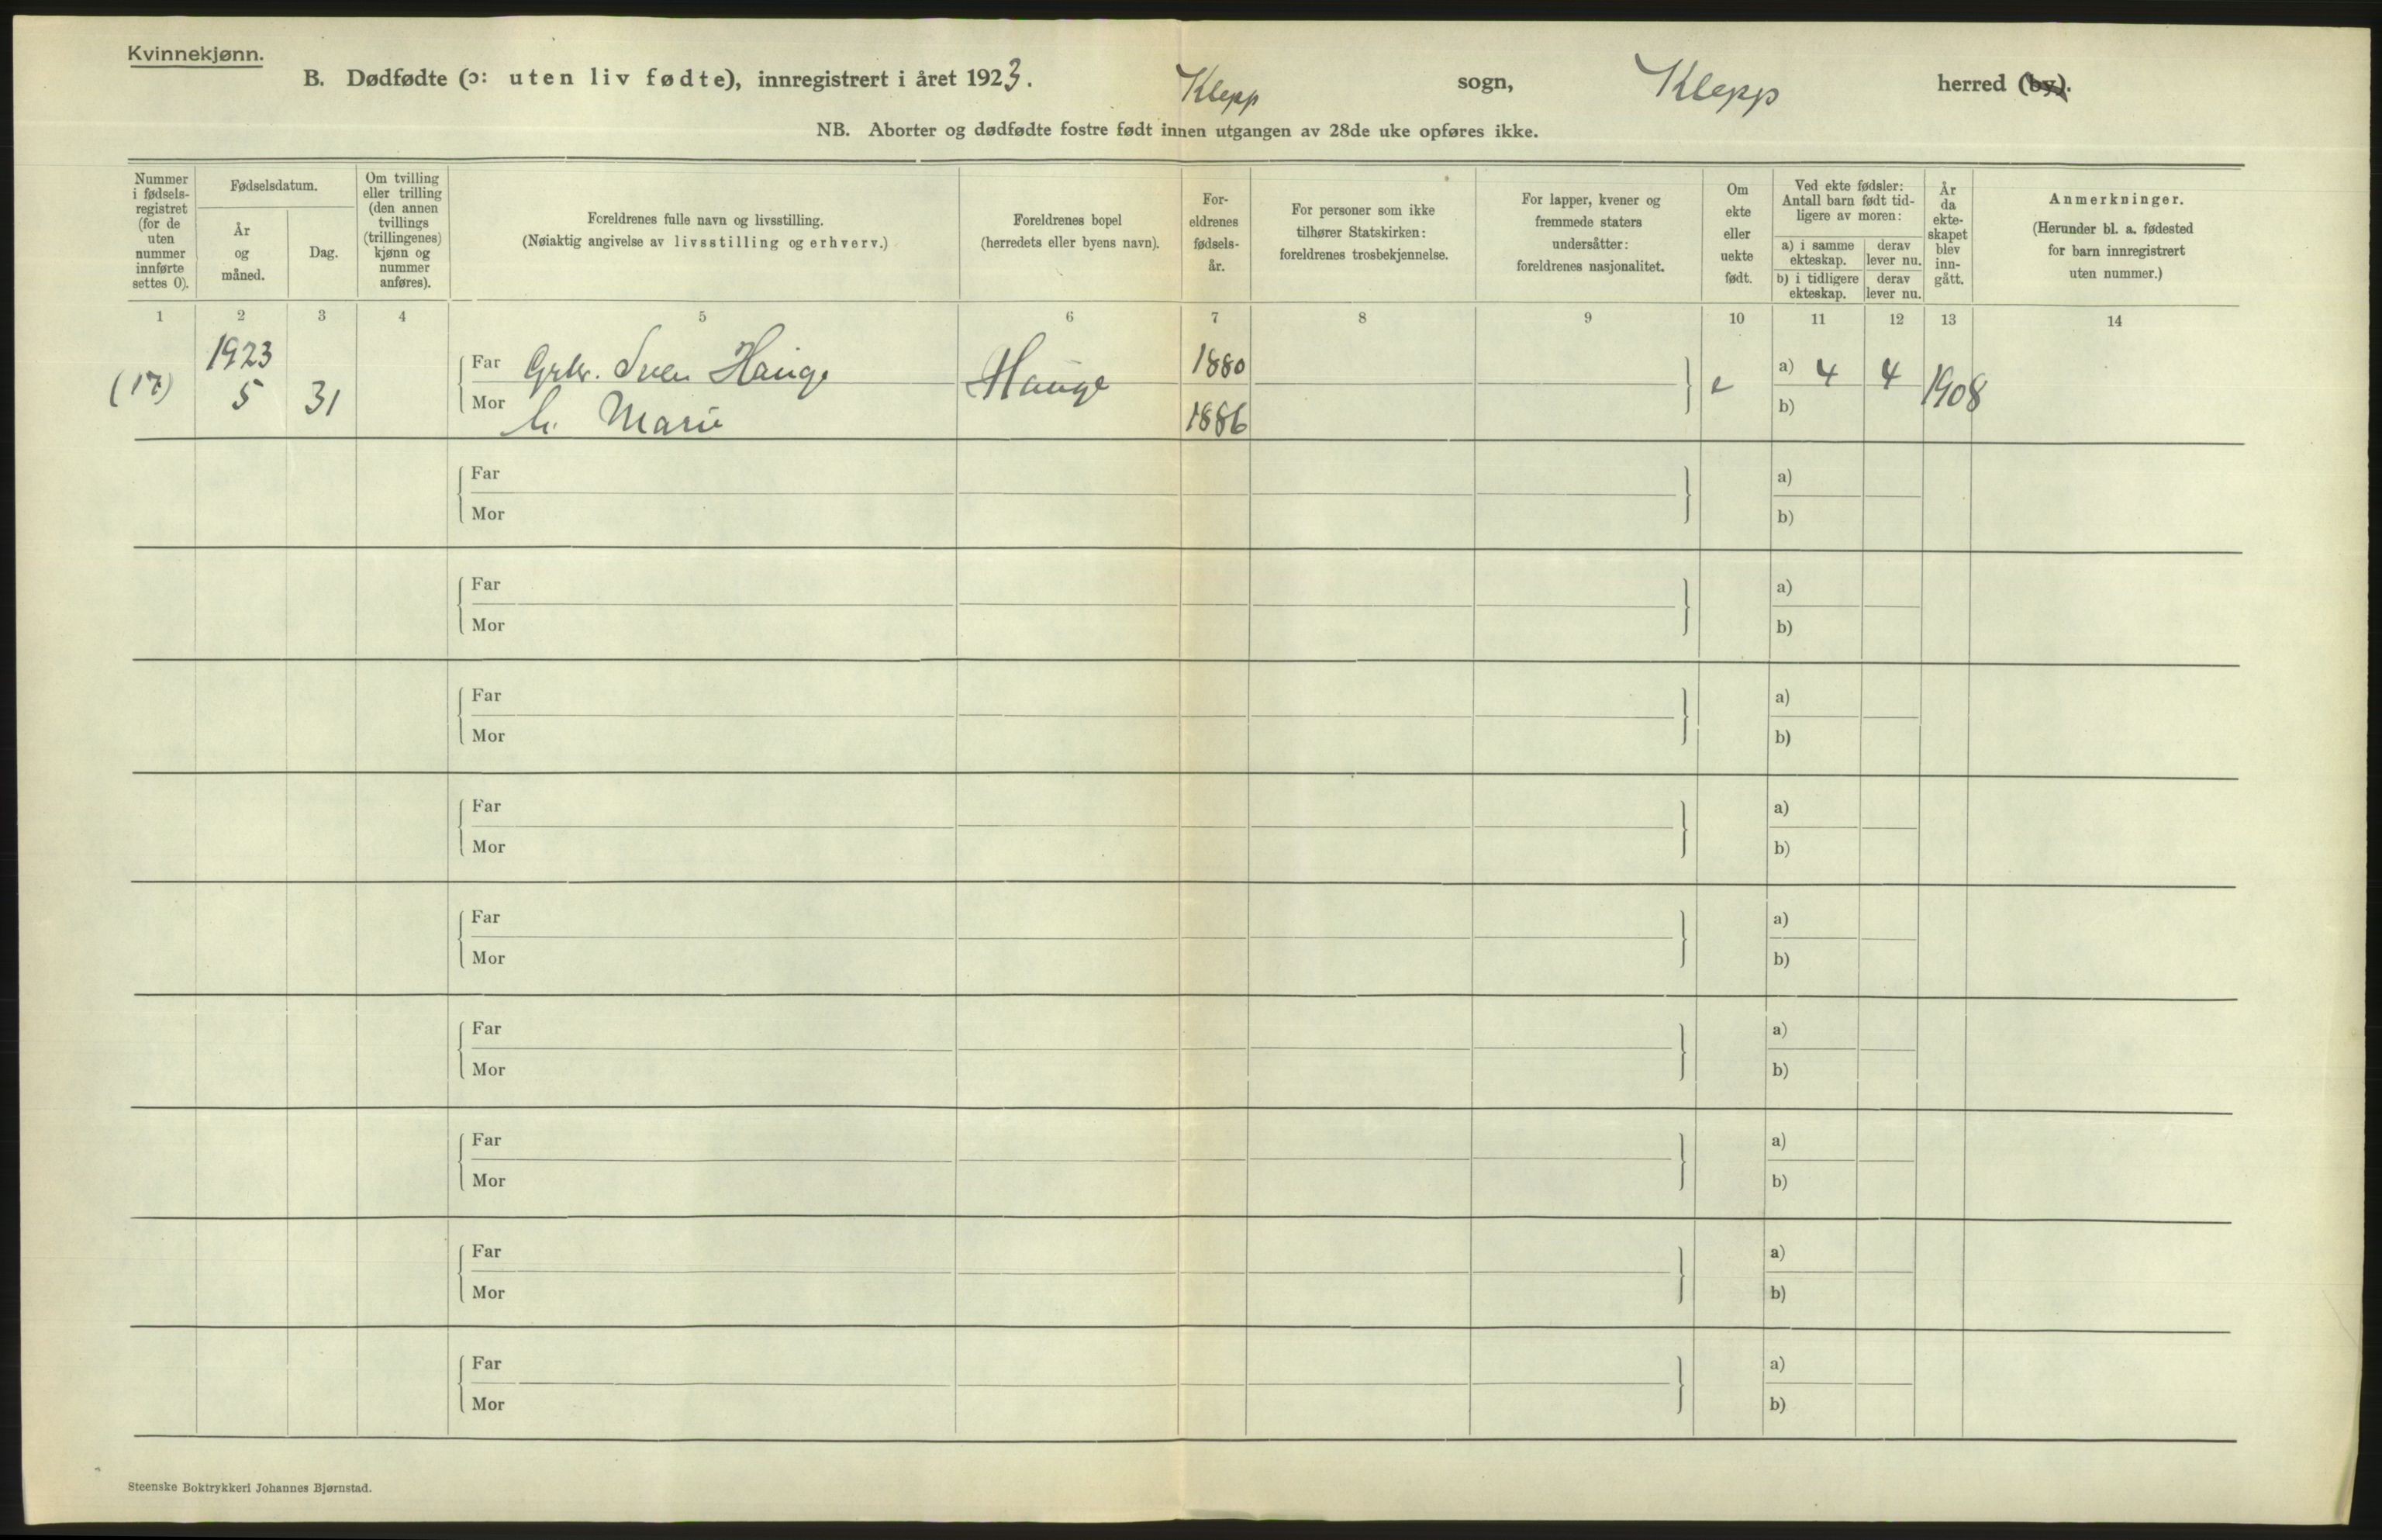 Kvinnekjønn.
B. Dødfødte (ɔ: uten liv fødte), innregistrert i året 1923. Klepp sogn, Klepp herred (by).
NB. Aborter og dødfødte fostre født innen utgangen av 28de uke opføres ikke.
Nummer
i fødsels-
registret
(for de
uten
nummer
innførte
settes 0).
Fødselsdatum.
År
og
måned.
Dag.
Om tvilling
eller trilling
(den annen
tvillings
(trillingenes)
kjønn og
nummer
anføres).
Foreldrenes fulle navn og livsstilling.
(Nøiaktig angivelse av livsstilling og erhverv.)
Foreldrenes bopel
(herredets eller byens navn).
For-
eldrenes
fødsels-
år.
For personer som ikke
tilhører Statskirken:
foreldrenes trosbekjennelse.
For lapper, kvener og
fremmede staters
undersåtter:
foreldrenes nasjonalitet.
Om
ekte
eller
uekte
født.
Ved ekte fødsler:
Antall barn født tid-
ligere av moren:
a) i samme
ekteskap.
derav
lever nu.
b) i tidligere
ekteskap.
derav
lever nu.
År
da
ekte-
skapet
blev
inn-
gått.
Anmerkninger.
(Herunder bl. a. fødested
for barn innregistrert
uten nummer.)
1 2 3 4 5 6 7 8 9 10 11 12 13 14
(17) 1923
5 31
Far Grbr. Sven Hauge Hauge 1880 e a) 4 4 1908
Mor h. Marie 1886 b)
Far a)
Mor b)
Far a)
Mor b)
Far a)
Mor b)
Far a)
Mor b)
Far a)
Mor b)
Far a)
Mor b)
Far a)
Mor b)
Far a)
Mor b)
Far a)
Mor b)
Steenske Boktrykkeri Johannes Bjørnstad.